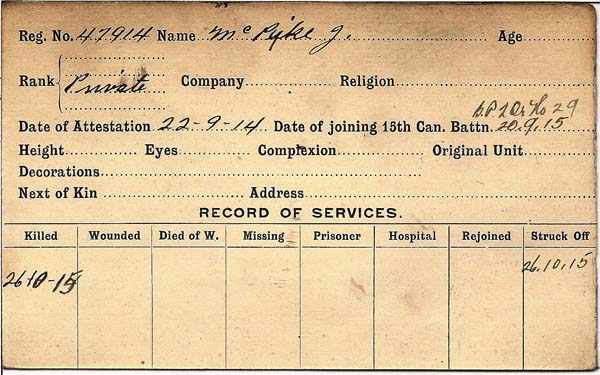 Reg. No. 47914 Name McPyke J. Age
Rank Private Company Religion
D.P. 2 Or No 29
Date of Attestation 22-9-14 Date of joining 15th Can. Battn. 20.9.15
Height Eyes Complexion Original Unit
Decorations
Next of Kin Address
RECORD OF SERVICES.
Killed Wounded Died of W. Missing Prisoner Hospital Rejoined Struck Off
26-10-15 26.10.15